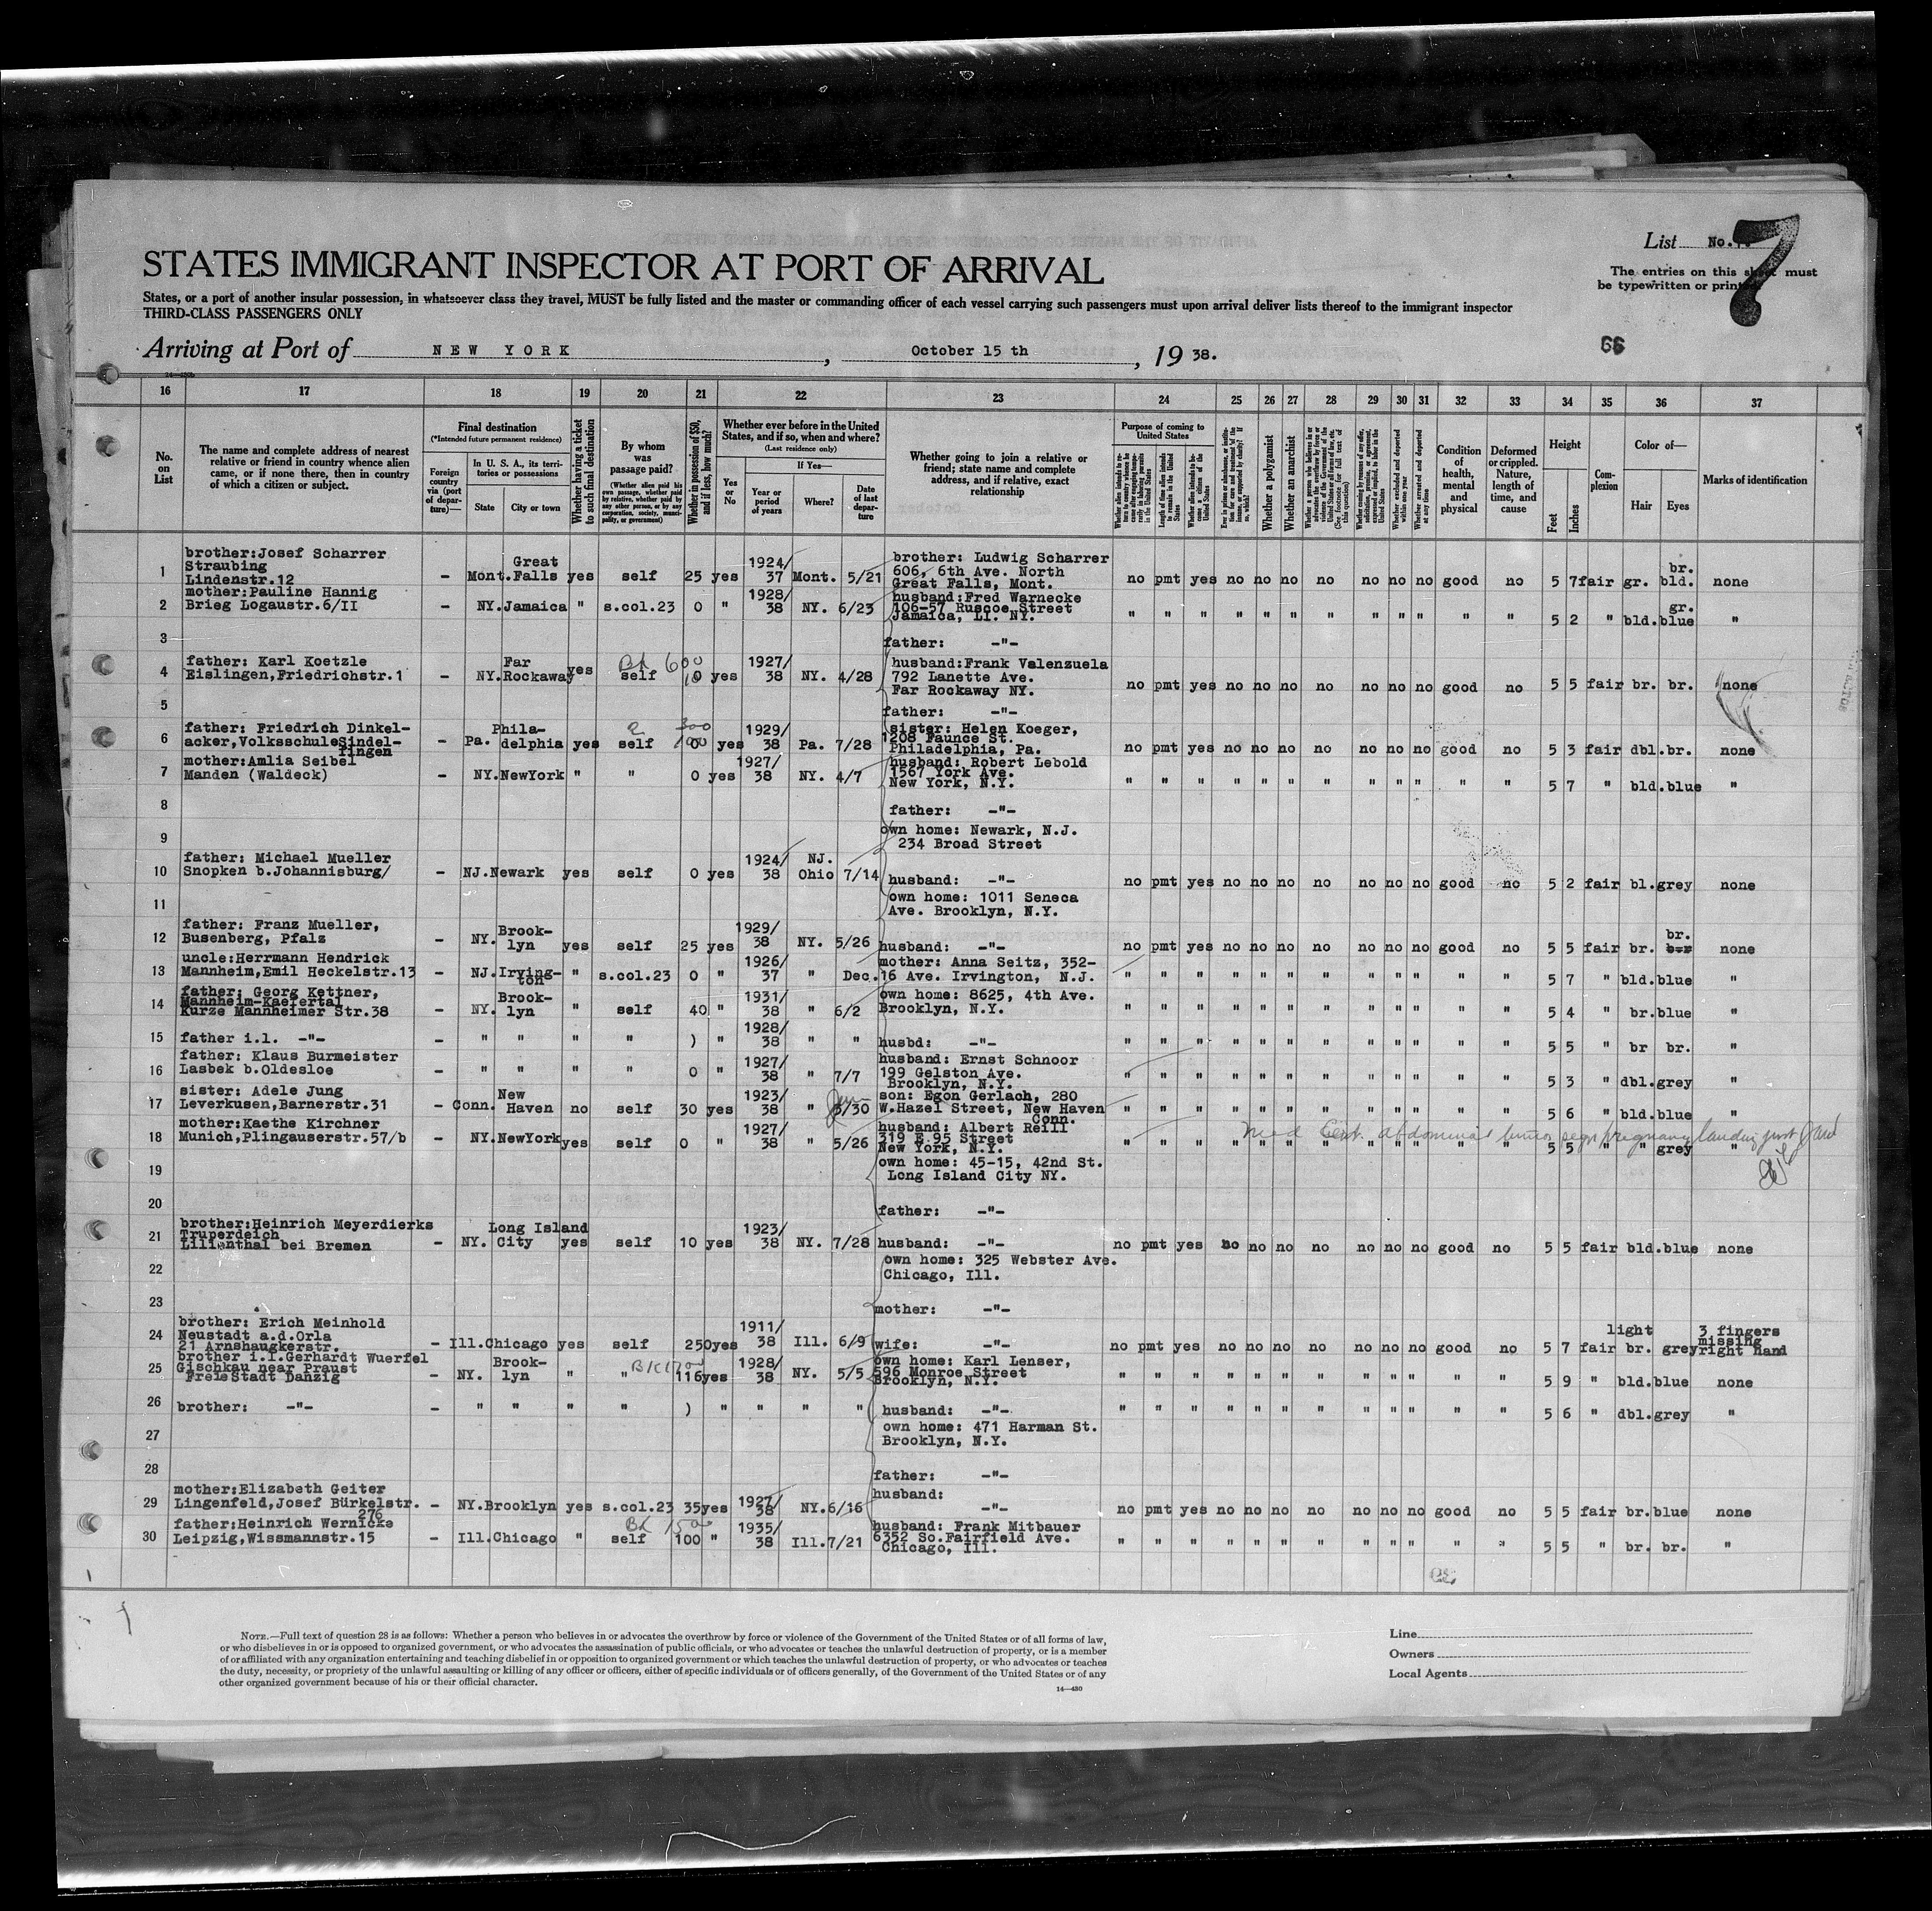 List No. 7
The entries on this sheet must
be typewritten or printed
STATES IMMIGRANT INSPECTOR AT PORT OF ARRIVAL
States, or a port of another insular possession, in whatsoever class they travel, MUST be fully listed and the master or commanding officer of each vessel carrying such passengers must upon arrival deliver lists thereof to the immigrant inspector
THIRD-CLASS PASSENGERS ONLY
Arriving at Port of NEW YORK, October 15 th, 19 38.
66
16 17 18 19 20 21 22 23 24 25 26 27 28 29 30 31 32 33 34 35 36 37
No. on List
The name and complete address of nearest relative or friend in country whence alien came, or if none there, then in country of which a citizen or subject.
Final destination
(*Intended future permanent residence)
Foreign country via (port of departure)—
In U. S. A., its territories or possessions
State
City or town
Whether having a ticket to such final destination
By whom was passage paid?
(Whether alien paid his own passage, whether paid by relative, whether paid by any other person, or by any corporation, society, municipality, or government)
Whether in possession of $50, and if less, how much?
Whether ever before in the United States, and if so, when and where?
(Last residence only)
Yes or No
If Yes—
Year or period of years
Where?
Date of last departure
Whether going to join a relative or friend; state name and complete address, and if relative, exact relationship
Purpose of coming to United States
Whether a polygamist
Whether an anarchist
Whether excluded and deported within one year
Whether arrested and deported at any time
Condition of health, mental and physical
Deformed or crippled. Nature, length of time, and cause
Height
Feet
Inches
Complexion
Color of—
Hair
Eyes
Marks of identification
1 brother:Josef Scharrer Straubing Lindenstr.12 – Mont. Great Falls yes self 25 yes 1924/37 Mont. 5/21 brother: Ludwig Scharrer 606, 6th Ave. North Great Falls, Mont. no pmt yes no no no no no no no good no 5 7 fair gr. br. bld. none
2 mother:Pauline Hannig Brieg Logaustr.6/II – NY. Jamaica " s.col.23 0 " 1928/38 NY. 6/23 husband:Fred Warnecke 106-57 Ruscoe Street Jamaica, LI. NY. " " " " " " " " " " " " 5 2 " bld. gr. blue "
3 father: -"-
4 father: Karl Koetzle Eislingen,Friedrichstr.1 – NY. Far Rockaway yes self 600 0 yes 1927/38 NY. 4/28 husband:Frank Valenzuela 792 Lanette Ave. Far Rockaway NY. no pmt yes no no no no no no no good no 5 5 fair br. br. none
5 father: -"-
6 father: Friedrich Dinkelacker,Volksschule Sindelfingen – Pa. Philadelphia yes self 300 0 yes 1929/38 Pa. 7/28 sister: Helen Koeger, 1208 Faunce St. Philadelphia, Pa. no pmt yes no no no no no no no good no 5 3 fair dbl. br. none
7 mother:Amlia Seibel Manden (Waldeck) – NY. NewYork " " 0 yes 1927/38 NY. 4/7 husband: Robert Lebold 1567 York Ave. New York, N.Y. " " " " " " " " " " " " 5 7 " bld. blue "
8 father: -"-
9 own home: Newark, N.J. 234 Broad Street
10 father: Michael Mueller Snopken b.Johannisburg/ – NJ. Newark yes self 0 yes 1924/38 NJ. Ohio 7/14 husband: -"- no pmt yes no no no no no no no good no 5 2 fair bl. grey none
11 own home: 1011 Seneca Ave. Brooklyn, N.Y.
12 father: Franz Mueller, Busenberg, Pfalz – NY. Brooklyn yes self 25 yes 1929/38 NY. 5/26 husband: -"- no pmt yes no no no no no no no good no 5 5 fair br. br. none
13 uncle:Herrmann Hendrick Mannheim,Emil Heckelstr.13 – NJ. Irvington " s.col.23 0 " 1926/37 " Dec. mother: Anna Seitz, 352-16 Ave. Irvington, N.J. " " " " " " " " " " " " 5 7 " bld. blue "
14 father: Georg Kettner, Mannheim-Kaefertal Kurze Mannheimer Str.38 – NY. Brooklyn " self 40 " 1931/38 " 6/2 own home: 8625, 4th Ave. Brooklyn, N.Y. " " " " " " " " " " " " 5 4 " br. blue "
15 father i.l. -"- – " " " " ) " 1928/38 " " husbd: -"- " " " " " " " " " " " " 5 5 " br br. "
16 father: Klaus Burmeister Lasbek b.Oldesloe – " " " " 0 " 1927/38 " 7/7 husband: Ernst Schnoor 199 Gelston Ave. Brooklyn, N.Y. " " " " " " " " " " " " 5 3 " dbl. grey "
17 sister: Adele Jung Leverkusen,Barnerstr.31 – Conn. New Haven no self 30 yes 1923/38 " 3/30 son: Egon Gerlach, 280 W.Hazel Street, New Haven Conn. " " " " " " " " " " " " 5 6 " bld. blue "
18 mother:Kaethe Kirchner Munich,Plingauserstr.57/b – NY. NewYork yes self 0 " 1927/38 " 5/26 husband: Albert Reill 319 E.95 Street New York, N.Y. " " " " " " " " " " " " 5 5 " " grey "
Med Cert. abdominal tumor pregnancy landing
19 own home: 45-15, 42nd St. Long Island City NY.
20 father: -"-
21 brother:Heinrich Meyerdierks Truperdeich Lilienthal bei Bremen – NY. Long Island City yes self 10 yes 1923/38 NY. 7/28 husband: -"- no pmt yes no no no no no no no good no 5 5 fair bld. blue none
22 own home: 325 Webster Ave. Chicago, Ill.
23 mother: -"-
24 brother: Erich Meinhold Neustadt a.d.Orla 21 Arnshaugkerstr. – Ill. Chicago yes self 250 yes 1911/38 Ill. 6/9 wife: -"- no pmt yes no no no no no no no good no 5 7 fair light br. grey 3 fingers missing right hand
25 brother i.l.Gerhardt Wuerfel Gischkau near Praust Freie Stadt Danzig – NY. Brooklyn " " 116 yes 1928/38 NY. 5/5 own home: Karl Lenser, 596 Monroe Street Brooklyn, N.Y. " " " " " " " " " " " " 5 9 " bld. blue none
26 brother: -"- – " " " " ) " " " " husband: -"- " " " " " " " " " " " " 5 6 " dbl. grey "
27 own home: 471 Harman St. Brooklyn, N.Y.
28 father: -"-
29 mother:Elizabeth Geiter Lingenfeld,Josef Bürkelstr. 276 – NY. Brooklyn yes s.col.23 35 yes 1927/38 NY. 6/16 husband: -"- no pmt yes no no no no no no no good no 5 5 fair br. blue none
30 father:Heinrich Wernicke Leipzig,Wissmannstr.15 – Ill. Chicago " self 100 " 1935/38 Ill. 7/21 husband: Frank Mitbauer 6352 So.Fairfield Ave. Chicago, Ill. " " " " " " " " " " " " 5 5 " br. br. "
NOTE.—Full text of question 28 is as follows: Whether a person who believes in or advocates the overthrow by force or violence of the Government of the United States or of all forms of law,
or who disbelieves in or is opposed to organized government, or who advocates the assassination of public officials, or who advocates or teaches the unlawful destruction of property, or is a member
of or affiliated with any organization entertaining and teaching disbelief in or opposition to organized government or which teaches the unlawful destruction of property, or who advocates or teaches
the duty, necessity, or propriety of the unlawful assaulting or killing of any officer or officers, either of specific individuals or of officers generally, of the Government of the United States or of any
other organized government because of his or their official character.
14—430
Line
Owners
Local Agents